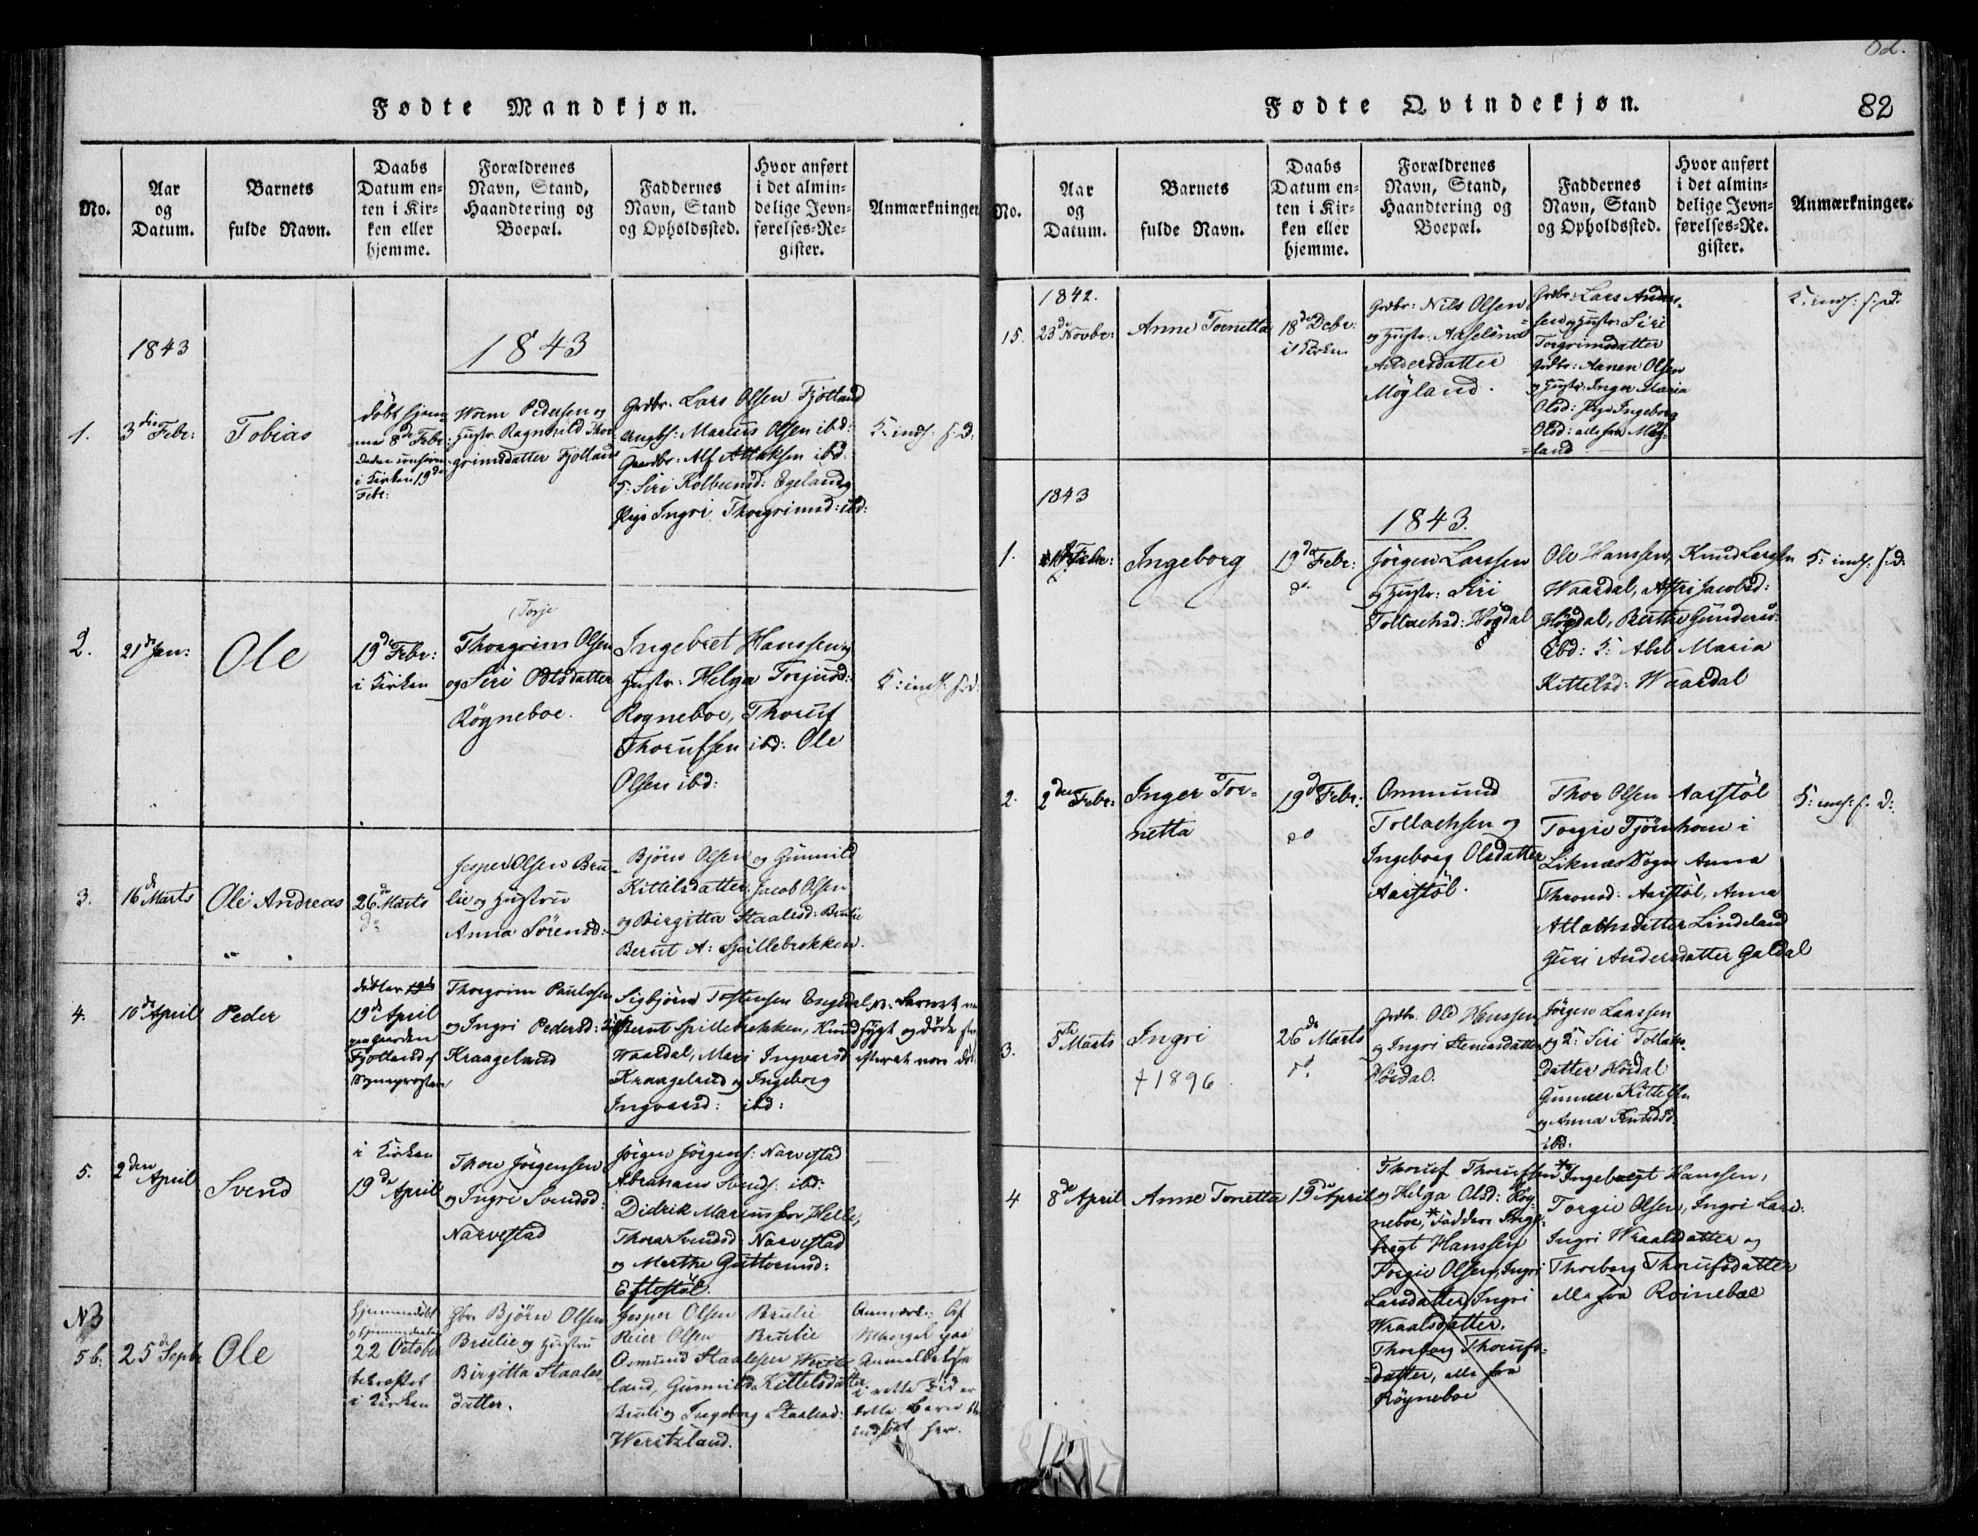 82.
Fødte Mandkjøn.
No.
Aar
og
Datum.
Barnets
fulde Navn.
Daabs
Datum en-
ten i Kir-
ken eller
hjemme.
Forældrenes
Navn, Stand,
Haandtering og
Boepæl.
Faddernes
Navn, Stand
og Opholdssted.
Hvor anført
i det almin-
delige Jevn-
førelses-Re-
gister.
Anmærkninger
1843
1843
1.
3die Febr:
Tobias
døbt hjem-
me 8de Febr:
i Kirken 19de
Febr:
Pedersen og
Hustr. Ragnhild Thor-
grimsdatter Fjotland
Grdbr. Lars Olsen Fjotland
Ungk: Marius Olsen ibd:
Gaardbr: Alf Atlaksen ibd.
K: Siri Kolbeensd: Egeland
Pige Ingri Thorgrimsd: ibd:
2.
21de Jan:
Ole
19de Febr:
i Kirken
(Torje
Thorgrim Olsen
og Siri Odtsdatter
Røgneboe.
Ingebret Hanssen og
Hustr: Helga Torjusd:
Rogneboe, Thoruf
Thorufsen ibd: Ole
Olsen ibd:
3.
16de Marts
Ole Andreas
26de Marts
do
Jesper Olsen Bru-
lie og Hustrue
Anna Sørensd:
Bjørn Olsen og Gunnild
Kittilsdatter. Jacob Olsen
og Birgitta Staalesd: Brulie
Berut A: Spillebrokken.
4.
10de April
Peder
19de April
paa Gaarden
Fjotland af
Sogneprosten
Thorgrim Paulssen
og Ingri Pedersd:
Kraageland
Sigbjørn Tostensen Eegedal
Berut Spillebrokken, Knud
Waardal, Mari Ingvarsd
Kraageland og Ingeborg
Ingvarsd: ibd:
sygt og døde
efterat være
5.
2den April
Svend
i Kirken
19de April
Thore Jørgensen
og Ingri Svendsd:
Narvestad
Jørgen Jørgens: Narvestad
Abraham Svends: ibd:
Didrik Mariussen Helle,
Thora Svendsd: Narvestad
og Marthe Guttormsd:
Eftestøl.
N3
5b.
25de Septb
Ole
Hjemmedøbt
22 October
bekræftet
i Kirken
Gbr. Bjørn Olsen
Brulie og Hustru
Birgitta Staales-
datter.
Jesper Olsen Brulie
Reier Olsen Brulie
Osmund Staalesen Werits-
land, Gunnild Kittelsdatter
Brulie og Ingeborg Staalesd:
Weritzland.
Anmærk: Af
Mangel paa
Anmeldelse
i rette Tid er
dette Barn
indført her.
Fødte Qvindekjøn.
82
No.
Aar
og
Datum.
Barnets
fulde Navn.
Daabs
Datum en-
ten i Kir-
ken eller
hjemme.
Forældrenes
Navn, Stand,
Haandtering og
Boepæl.
Faddernes
Navn, Stand
og Opholdssted.
Hvor anført
i det almin-
delige Jevn-
førelses-Re-
gister.
Anmærkninger.
15.
1842.
23de Novbr:
Anne Tonetta
18de Debr:
i Kirken
Grdbr: Nils Olsen
og Hustr: Adselina
Andersdatter
Møgland.
Grdbr: Lars Anders-
sen og Hustr: Siri
Torgrimsdatter
Grdbr: Aanen Olsen
og Hustr: Inger Maria
Olsd: Pige Ingeborg
Olsd: alle fra Møg-
land
1843
1843.
1.
Febr:
Ingeborg
19de Febr:
do
Jørgen Larssen
og Hustr: Siri
Tollachsd: Høgdal
Ole Hanssen, Knud Larssen
Waardal, Assri Jacobsd:
Høgdal, Berthe Gundersd:
ibd: K: Abel Maria
Kittelsd: Waardal
2.
2den Febr:
Inger Tor-
netta
19de Febr:
do
Ommund
Tollachsen og
Ingeborg Olsdatter
Aarstøl.
Thor Olsen Aarstøl
Torgie Tjørnhom i
Liknæs Sogn Anna
Thronsd: Aarstøl, Anna
Atlakhsdatter Lindeland
Guri Andersdatter Galdal
3.
5te Marts
Ingri
† 1896
26de Marts
do
Grdbr. Ole Hanssen
og Ingri Stenersdatter
Hördal.
Jørgen Larssen
og K: Siri Tollaks-
datter Hördal
Gunner Kittelsen
og Anna Knudsd
ibd.
4
8de April
Anne Tonetta
19de April
Thoruf Thorufsen
og Helga Olsd: Røg-
neboe,* Faddere Inge-
bregt Hanssen
Torgie Olsen, Ingri
Larsdatter, Ingri
Wraalsdatter,
Thorborg Thorufs-
datter, alle fra
Røgneboe
* Ingebregt Hanssen,
Torgie Olsen, Ingri Larsd:
Ingri Wraalsdatter og
Thorborg Thorufsdatter
alle fra Roinebøe